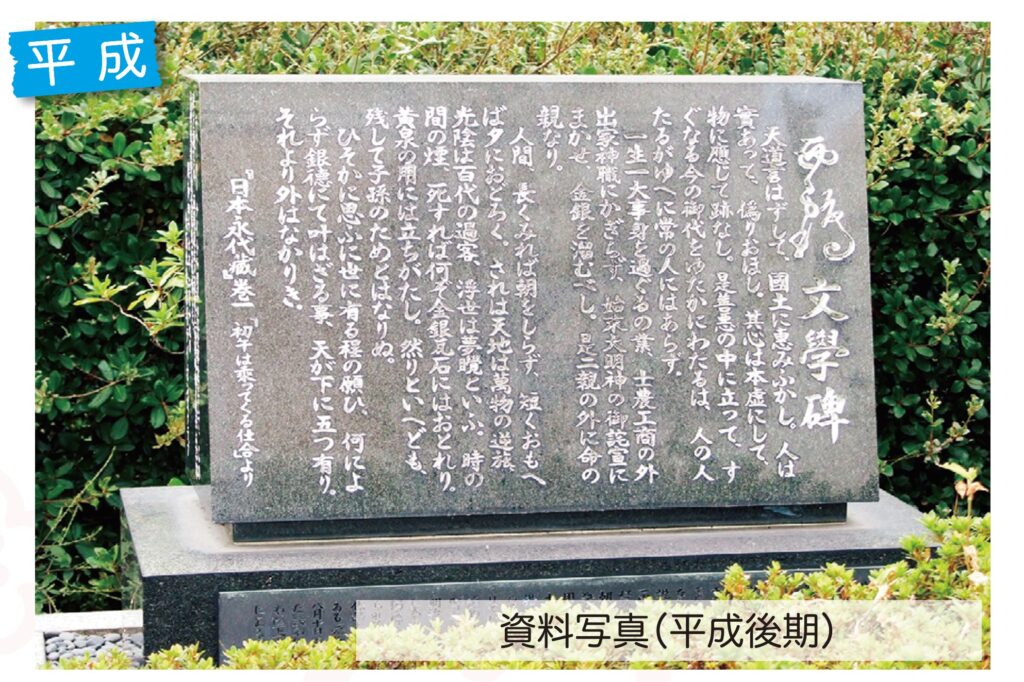 平成
西鶴 文學碑
天道言はずして、國土に惠みふかし。人は
實あって、僞りおほし。其心は本虚にして、
物に應じて跡なし。是善惡の中に立って、す
ぐなる今の御代をゆたかにわたるは、人の人
たるがゆへに常の人にはあらず。
一生一大事身を過ぐるの業、士農工商の外
出家神職にかぎらず、始末大明神の御託宣に
まかせ、金銀を溜むべし。是二親の外に命の
親なり。
人間、長くみれば朝をしらず、短くおもへ
ば夕におどろく。されば天地は萬物の逆旅、
光陰は百代の過客、浮世は といふ。時の
間の煙、死すれば何ぞ金銀瓦石にはおとれり。
黄泉の用には立ちがたし。然りといへども、
残して子孫のためとはなりぬ。
ひそかに思ふに世に有る程の願ひ、何によ
らず銀徳にて叶はざる事、天が下に五つ有り。
それより外はなかりき。
『日本永代藏』巻一「初午は乗ってくる仕合」より
資料写真(平成後期)